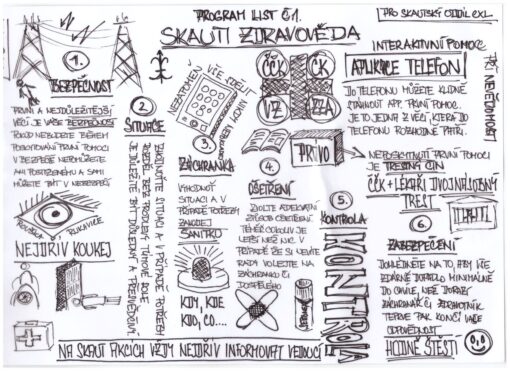 PROGRAM LIST Č1.
PRO SKAUTSKÝ ODDÍL EXL.
SKAUTI ZDRAVOVĚDA
INTERAKTIVNÍ POMOC
APLIKACE TELEFON
DO TELEFONU MŮŽETE KLIDNĚ
STÁHNOUT APP, PRVNÍ POMOC.
JE TO JEDNA Z VĚCÍ, KTERÁ DO
TELEFONU ROZHODNĚ PATŘÍ.
1.
BEZPEČNOST
PRVNÍ A NEJDŮLEŽITĚJŠÍ
VĚCÍ JE VAŠE BEZPEČNOST
POKUD NEBUDETE BĚHEM
POSKYTOVÁNÍ PRVNÍ POMOCI
V BEZPEČÍ NEPOMŮŽETE
ANI POSTIŽENÉMU A SAMI
MŮŽETE BÝT V NEBEZPEČÍ
ROUŠKA
RUKAVICE
NEJDŘÍV KOUKEJ
2
SITUACE
ZHODNOŤTE SITUACI A V PŘÍPADĚ POTŘEBY
JE DŮLEŽITÉ BÝT DŮSLEDNÝ A PŘESVĚDČIVÝ
NEZAPOMEŇ
VŠE SDĚLIT
3.
ZÁCHRANKA
VYHODNOŤ
SITUACI A V
PŘÍPADĚ POTŘEBY
ZAVOLEJ
SANITKU
KDY, KDE
KDO, CO....
ČČK
ČK
VZ
ZZA
4.
OŠETŘENÍ
ZVOLTE ADEKVÁTNÍ
ZPŮSOB OŠETŘENÍ
TÉMĚŘ COKOLIV JE
LEPŠÍ NEŽ NIC V
PŘÍPADĚ ŽE SI NEVÍTE
RADY VOLEJTE NA
ZÁCHRANKU ČI
DOSPĚLÉHO
PRVO
NEPOSKYTNUTÍ PRVNÍ POMOCI
JE TRESTNÝ ČIN
ČČK + LÉKAŘI DVOJNÁSOBNÝ
TREST
5.
KONTROLA
KONTROLA
6.
ZABEZPEČENÍ
DOHLÉDNĚTE NA TO, ABY VŠE
ZDÁRNĚ DOPADLO MINIMÁLNĚ
DO CHVÍLE, NEŽ DORAZÍ
ZÁCHRANÁŘ ČI ZDRAVOTNÍK
TEPRVE PAK KONČÍ VAŠE
ODPOVĚDNOST
HODNĚ ŠTĚSTÍ
NA SKAUT AKCÍCH VŽDY NEJDŘÍV INFORMOVAT VEDOUCÍ